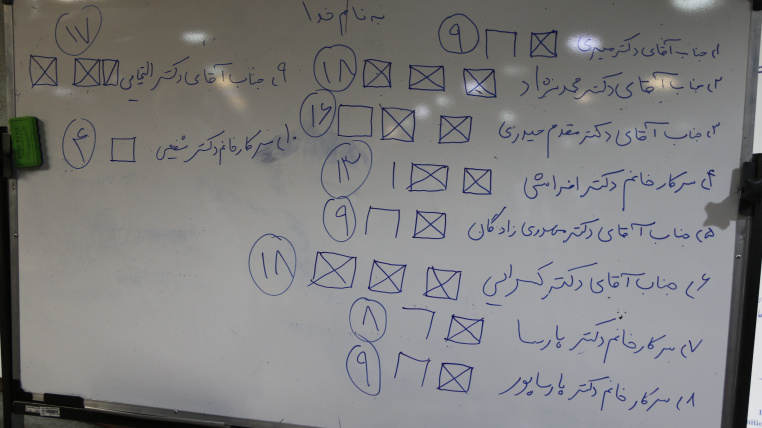 به نام خدا
۱, جناب آقای دکتر حیدری ۹
۲, جناب آقای دکتر محمدنژاد ۱۸
۳, جناب آقای دکتر مقدم حیدری ۱۶
۴, سرکار خانم دکتر افراشی ۱۳
۵, جناب آقای دکتر مهدوی زادگان ۹
۶, جناب آقای دکتر کسرایی ۱۸
۷, سرکار خانم دکتر پارسا ۸
۸, سرکار خانم دکتر پارساپور ۹
۹, جناب آقای دکتر ۱۷
۱۰, سرکار خانم دکتر شفیعی ۴